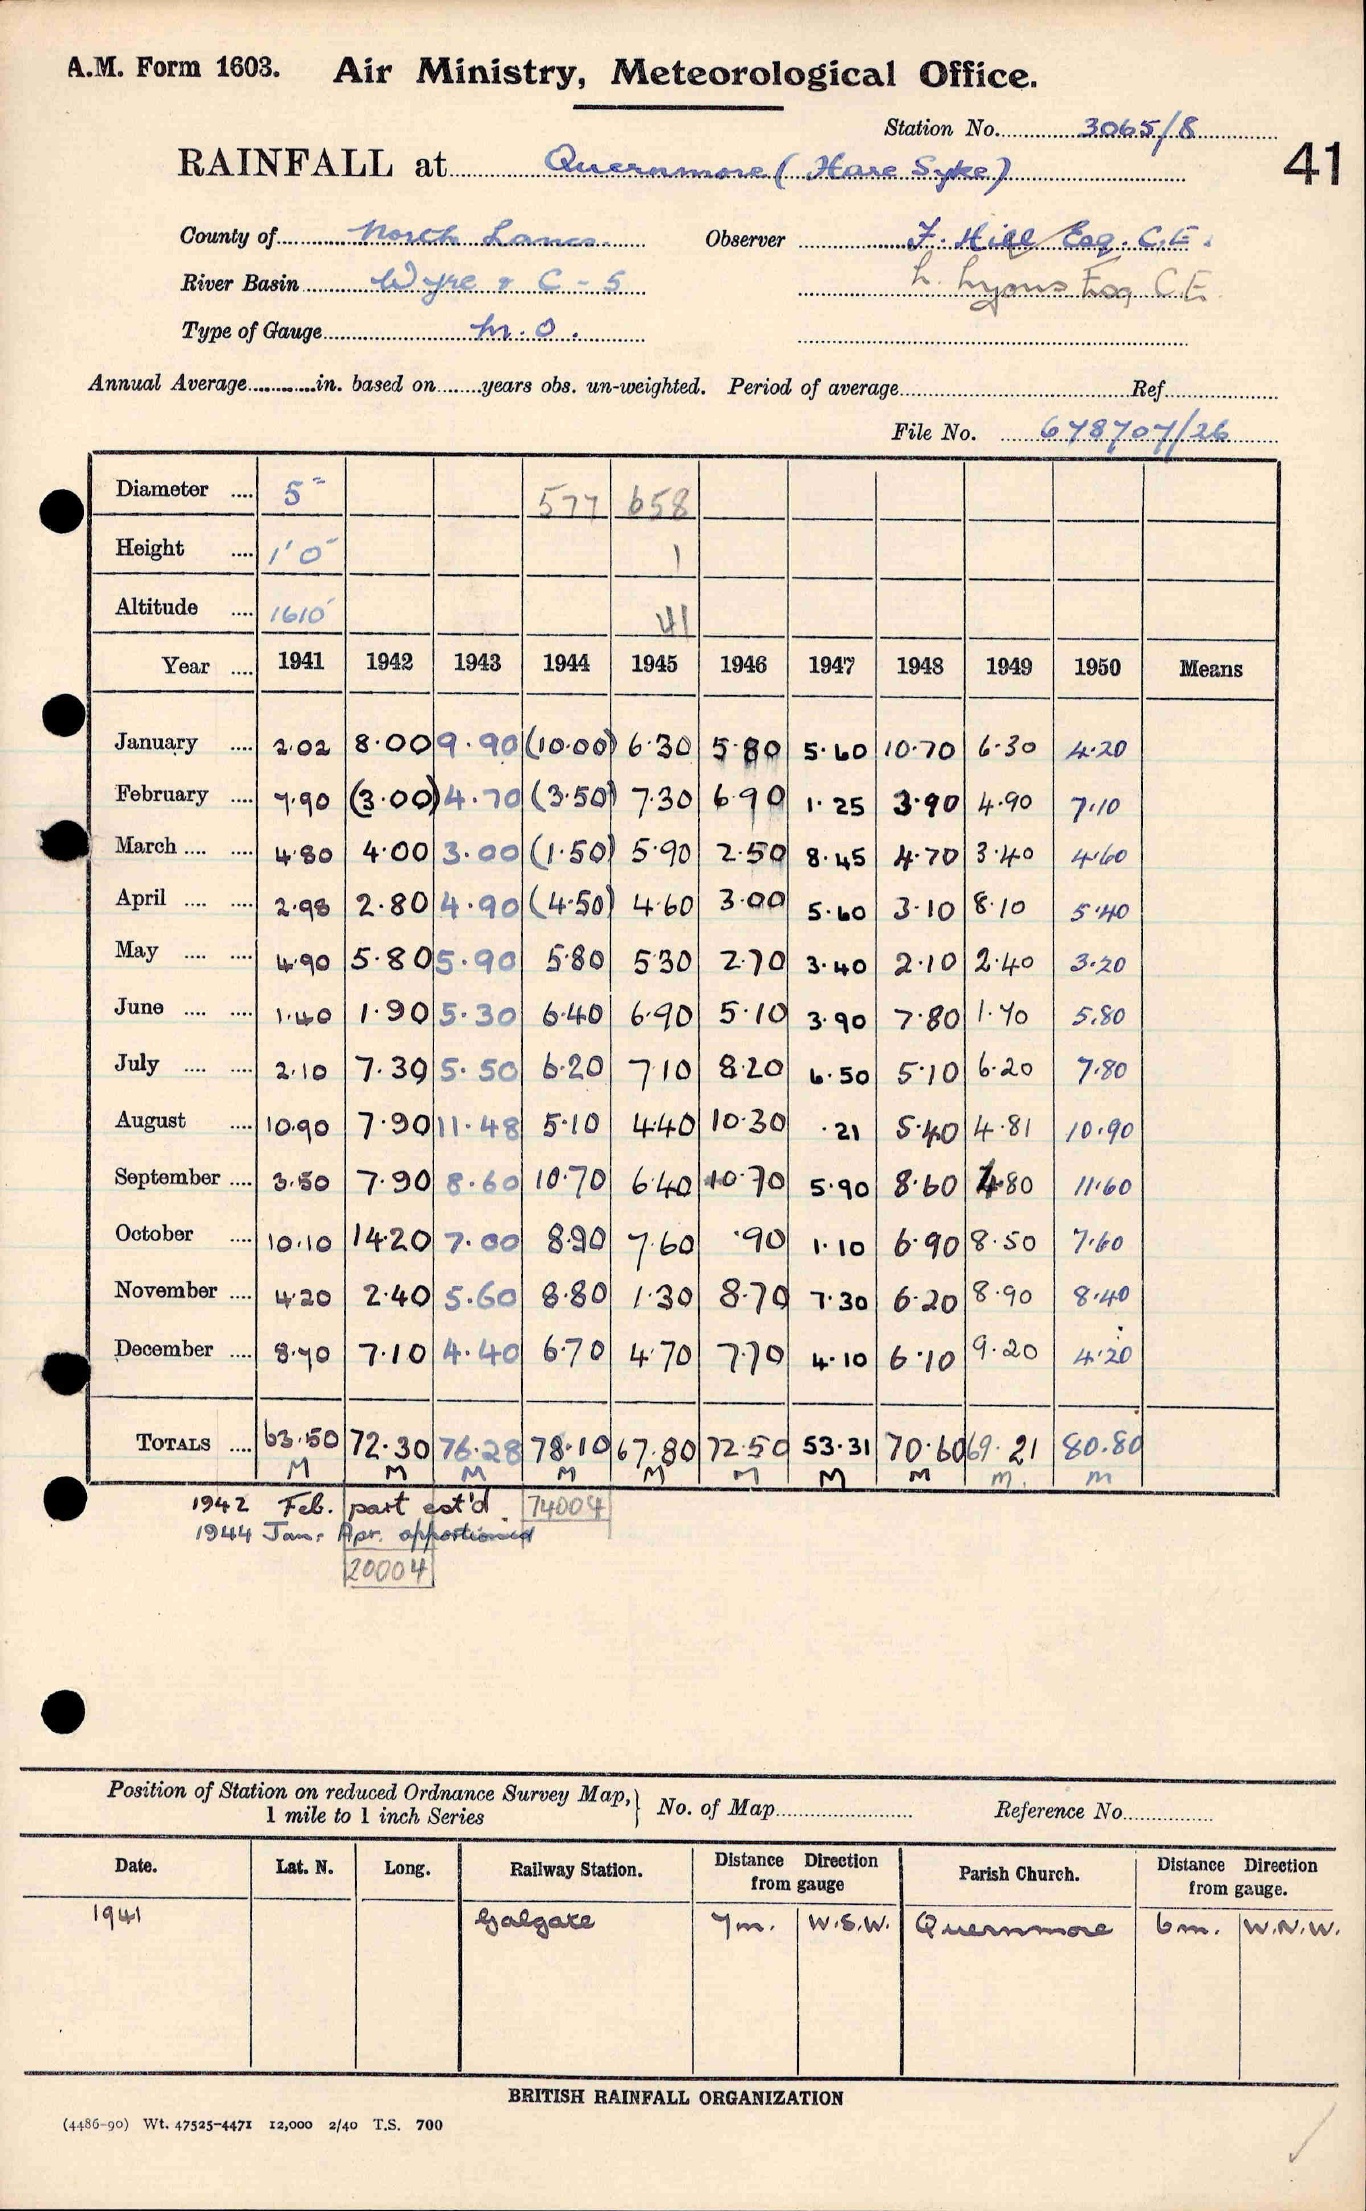 A.M. Form 1603. Air Ministry, Meteorological Office.
Station No. 3065/8
41
RAINFALL at Quernmore (Hare Syke)
County of North Lancs. Observer F. Hill Esq. C.E.
River Basin Wyre & C - 5 L. Lyons Esq C.E.
Type of Gauge M.O.
Annual Average in. based on years obs. un-weighted. Period of average Ref
File No. 678707/26
Diameter .... 5" 577 658
Height .... 1'0" 1
Altitude .... 1610' 41
Year .... 1941 1942 1943 1944 1945 1946 1947 1948 1949 1950 Means
January .... 2.02 8.00 9.90 (10.00) 6.30 5.80 5.60 10.70 6.30 4.20
February .... 7.90 (3.00) 4.70 (3.50) 7.30 6.90 1.25 3.90 4.90 7.10
March .... .... 4.80 4.00 3.00 (1.50) 5.90 2.50 8.45 4.70 3.40 4.60
April .... .... 2.98 2.80 4.90 (4.50) 4.60 3.00 5.60 3.10 8.10 5.40
May .... .... 4.90 5.80 5.90 5.80 5.30 2.70 3.40 2.10 2.40 3.20
June .... .... 1.40 1.90 5.30 6.40 6.90 5.10 3.90 7.80 1.70 5.80
July .... .... 2.10 7.30 5.50 6.20 7.10 8.20 6.50 5.10 6.20 7.80
August .... 10.90 7.90 11.48 5.10 4.40 10.30 .21 5.40 4.81 10.90
September .... 3.50 7.90 8.60 10.70 6.40 10.70 5.90 8.60 4.80 11.60
October .... 10.10 14.20 7.00 8.90 7.60 .90 1.10 6.90 8.50 7.60
November .... 4.20 2.40 5.60 8.80 1.30 8.70 7.30 6.20 8.90 8.40
December .... 8.70 7.10 4.40 6.70 4.70 7.70 4.10 6.10 9.20 4.20
TOTALS .... 63.50 72.30 76.28 78.10 67.80 72.50 53.31 70.60 69.21 80.80
M M M M M M M M m. m
1942 Feb. part est'd. 74004
1944 Jan: Apr. apportioned
20004
Position of Station on reduced Ordnance Survey Map, 1 mile to 1 inch Series } No. of Map Reference No.
Date. Lat. N. Long. Railway Station. Distance Direction from gauge Parish Church. Distance Direction from gauge.
1941 Galgate 7m. W.S.W. Quernmore 6m. W.N.W.
BRITISH RAINFALL ORGANIZATION
(4486-90) Wt. 47525-4471 12,000 2/40 T.S. 700